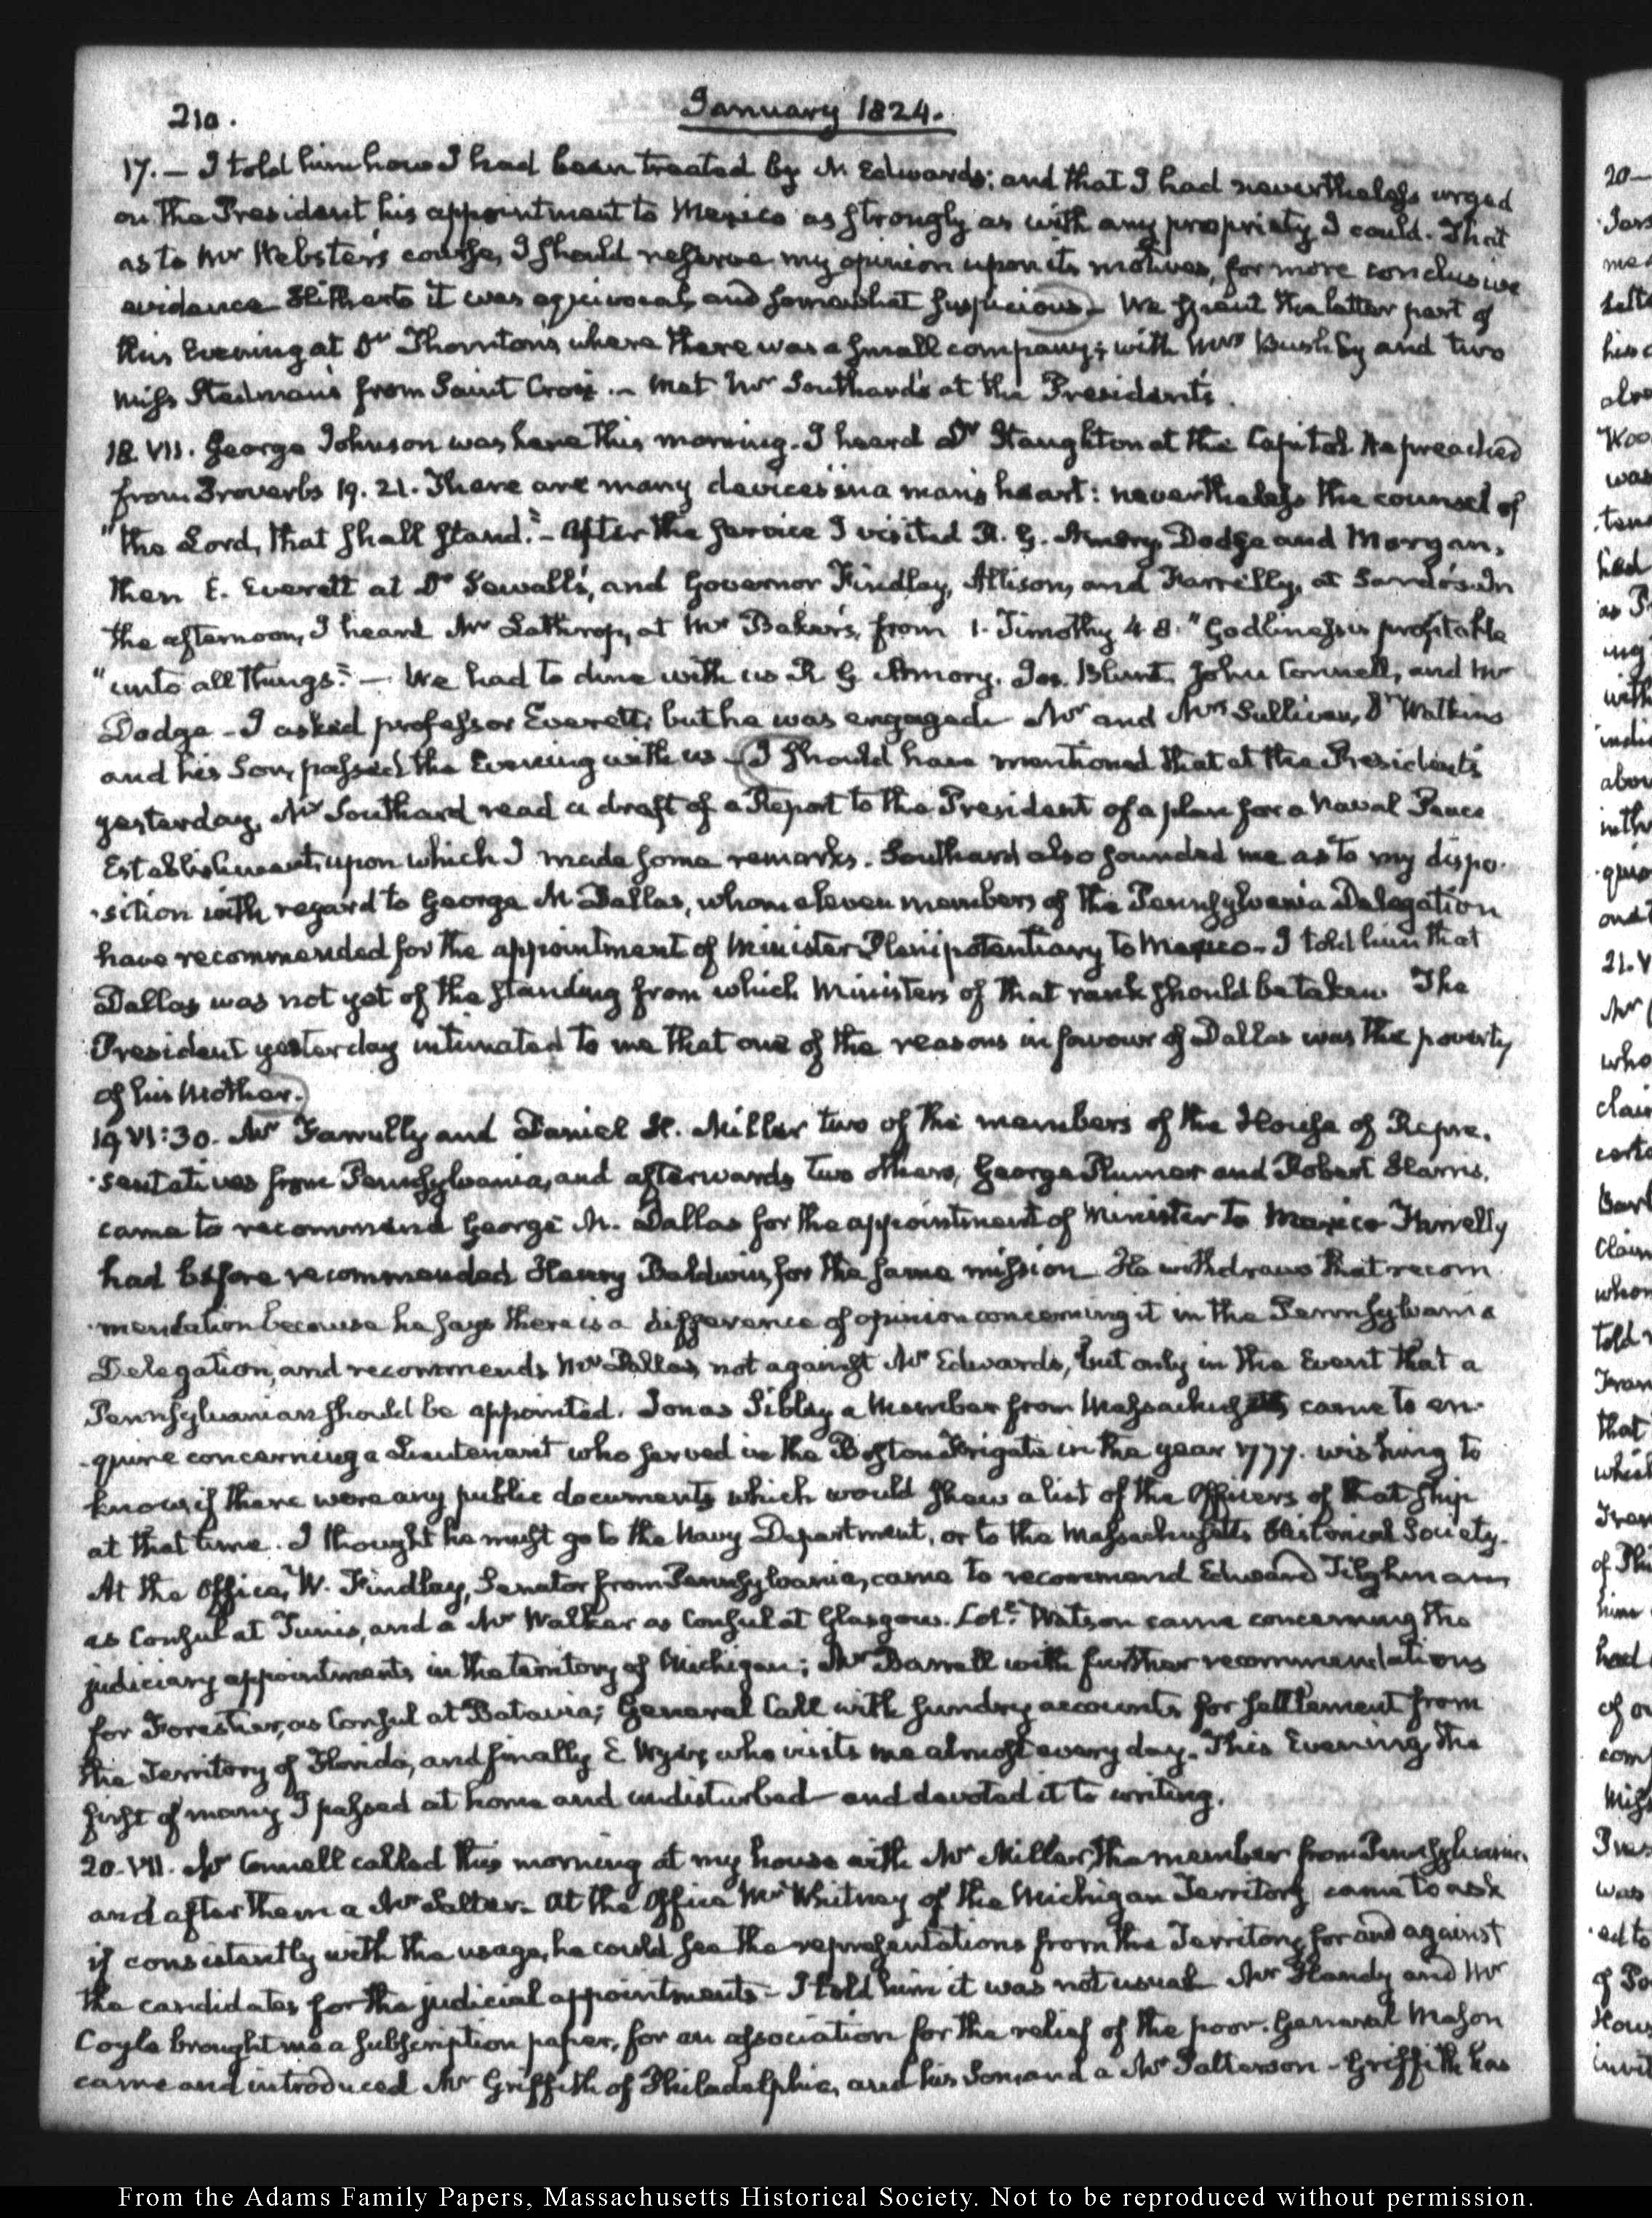 210.
January 1824.
17. — I told him how I had been treated by Mr Edwards; and that I had nevertheless urged
on the President his appointment to Mexico as strongly as with any propriety I could. That
as to Mr Webster's course, I should reserve my opinion upon its motives, for more conclusive
evidence. Hitherto it was equivocal, and somewhat suspicious — We spent the latter part of
this Evening at Dr Thornton's where there was a small company; with Mrs Bushby and two
Miss Stedman's from Saint Croix. — Met Mr Southard's at the President's.
18. VII. George Johnson was here this morning. I heard Dr Staughton at the Capitol. He preached
from Proverbs 19. 21. There are many devices in a man's heart: nevertheless the counsel of
"the Lord, that shall stand." — After the service I visited R. G. Amory, Dodge and Morgan,
then E. Everett at Dr Sewall's, and Governor Findlay, Allison, and Farrelly, at In
the afternoon, I heard Mr Lathrop, at Mr Baker's, from 1. Timothy 4. 8. "Godliness is profitable
"unto all things." — We had to dine with us R G Amory. Jos. Blunt, John Connell, and Mr
Dodge — I asked professor Everett; but he was engaged. Mr and Mrs Sullivan, Dr Watkins
and his Son, passed the Evening with us — I should have mentioned that at the President's
yesterday, Mr Southard read a draft of a Report to the President of a plan for a Naval Peace
Establishment, upon which I made some remarks. Southard also sounded me as to my dispo-
-sition with regard to George M Dallas, whom eleven members of the Pennsylvania Delegation
have recommended for the appointment of Minister Plenipotentiary to Mexico — I told him that
Dallas was not yet of the standing from which Ministers of that rank should be taken. The
President yesterday intimated to me that one of the reasons in favour of Dallas was the poverty
of his Mother.
19. VI:30. Mr Farrelly and Daniel H. Miller two of the members of the House of Repre-
-sentatives from Pennsylvania, and afterwards two others, George Plumer and Robert Harris,
came to recommend George M. Dallas for the appointment of Minister to Mexico. Farrelly
had before recommended Henry Baldwin, for the same mission. He withdraws that recom-
-mendation because he says there is a difference of opinion concerning it in the Pennsylvania
Delegation, and recommends Mr Dallas, not against Mr Edwards, but only in the Event that a
Pennsylvanian should be appointed. Jonas Sibley a Member from Massachusetts came to en-
-quire concerning a Lieutenant who served in the Boston Frigate in the year 1777. wishing to
know, if there were any public documents which would shew a list of the Officers of that ship
at that time. I thought he must go to the Navy Department, or to the Massachusetts Historical Society.
At the Office, W. Findlay, Senator from Pennsylvania, came to recommend Edward Tilghman
as Consul at Tunis, and a Mr Walker as Consul at Glasgow. Col. Watson came concerning the
judiciary appointments in the territory of Michigan; Mr Barrell with further recommendations
for Forestier, as Consul at Batavia; General Call with sundry accounts for settlement from
the Territory of Florida, and finally E Wyer, who visits me almost every day. This Evening, the
first of many I passed at home and undisturbed — and devoted it to writing.
20. VII. Mr Connell called this morning at my house with Mr Miller, the member from Pennsylvania,
and after them a Mr Salter. At the Office Mr Whitney of the Michigan Territory, came to ask
if consistently with the usage, he could see the representations from the Territory, for and against
the candidates for the judicial appointments — I told him it was not usual. Mr Handy and Mr
Coyle brought me a subscription paper, for an association for the relief of the poor. General Mason
came and introduced Mr Griffith of Philadelphia, and his Son, and a Mr Patterson — Griffith has
From the Adams Family Papers, Massachusetts Historical Society. Not to be reproduced without permission.